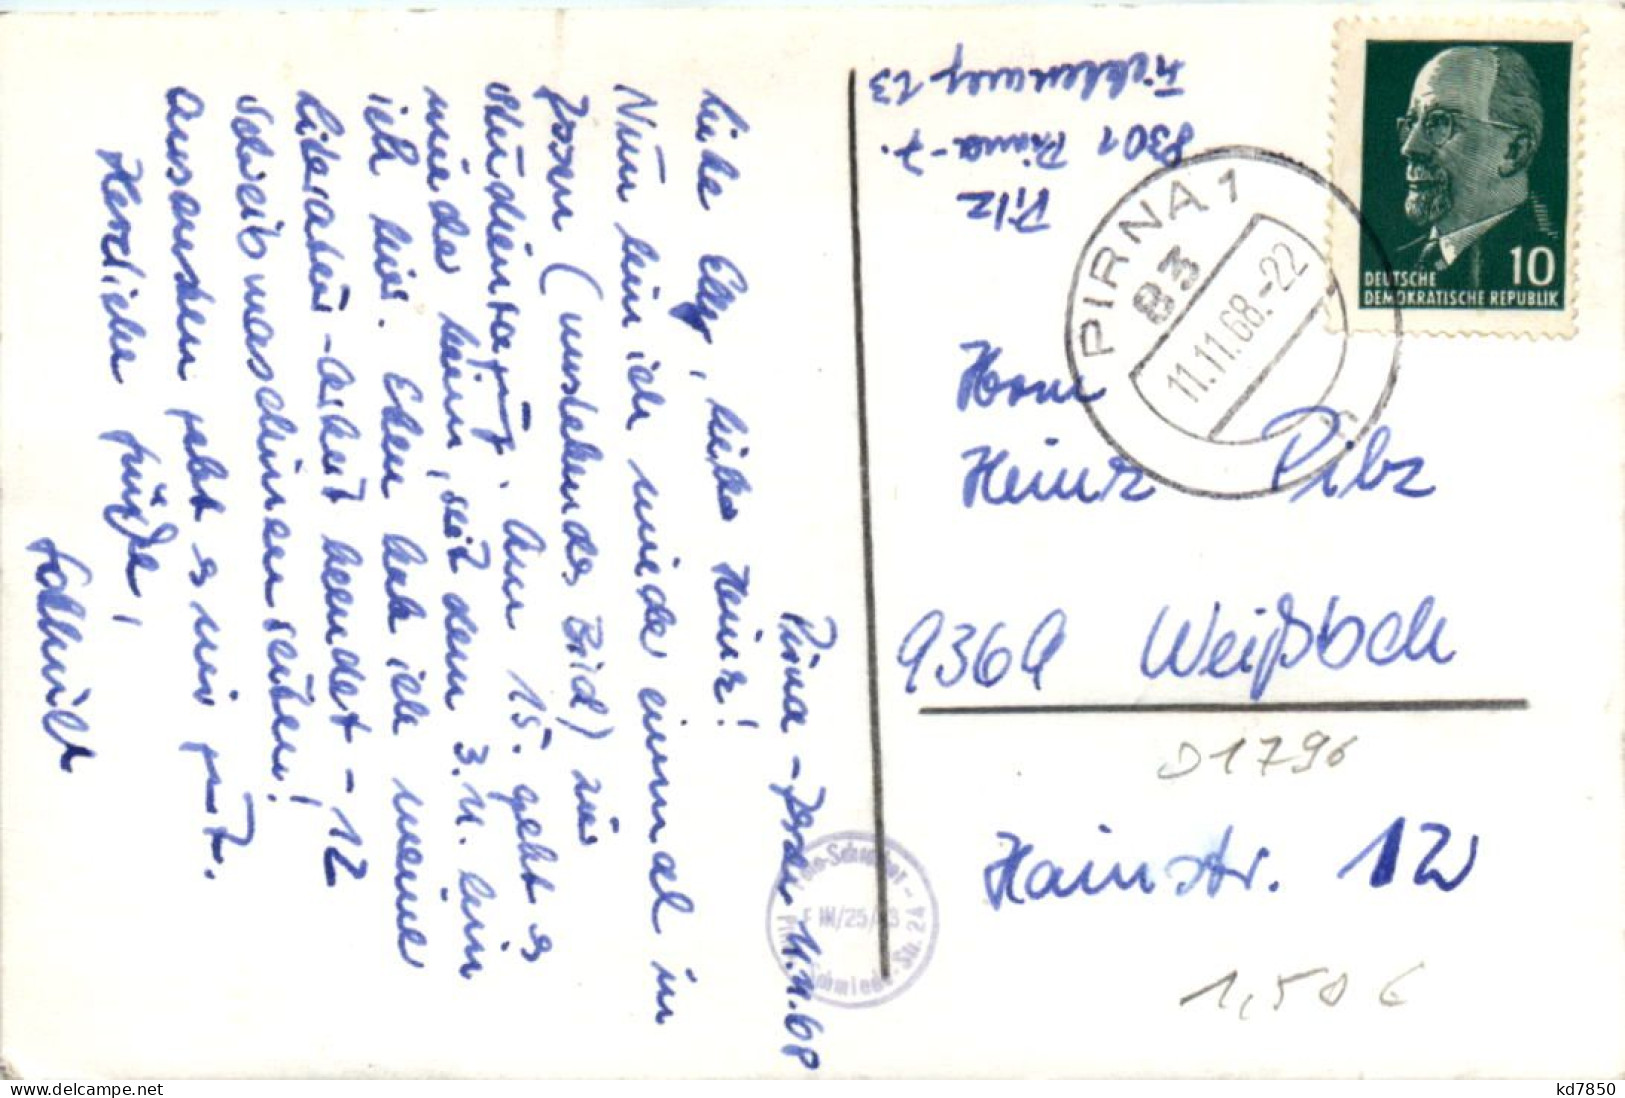 Pirna-Zosen 11.11.68
Liebe Elly, lieber Heinz!
Nun bin ich wieder einmal in
Zosen (umstehendes Bild) zur
Studientagung. Am 15. geht es
wieder heim, seit dem 3.11. bin
ich hier. Eben habe ich meine
Literatur-Arbeit beendet - 12
Schreibmaschinenseiten!
Ansonsten geht es mir gut.
Herzliche Grüße,
Pilz
8301 Pirna-7.
23
PIRNA 1
83
11.11.68.-22
h
10
DEUTSCHE
DEMOKRATISCHE REPUBLIK
Herrn
Heinz Pilz
9369 Weißbach
D1796
Hainstr. 12
1,50 €
III/25/
Schmiede-Str. 24
kd7850